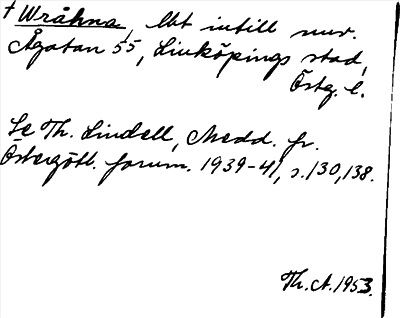 † Wråkna, lbt intill nuv.
Ågatan 55, Linköpings stad,
Östg. l.
Se Th. Lindell, Medd. fr.
Östergötl. fornm. 1939-41, s. 130, 138.
Th. A. 1953.